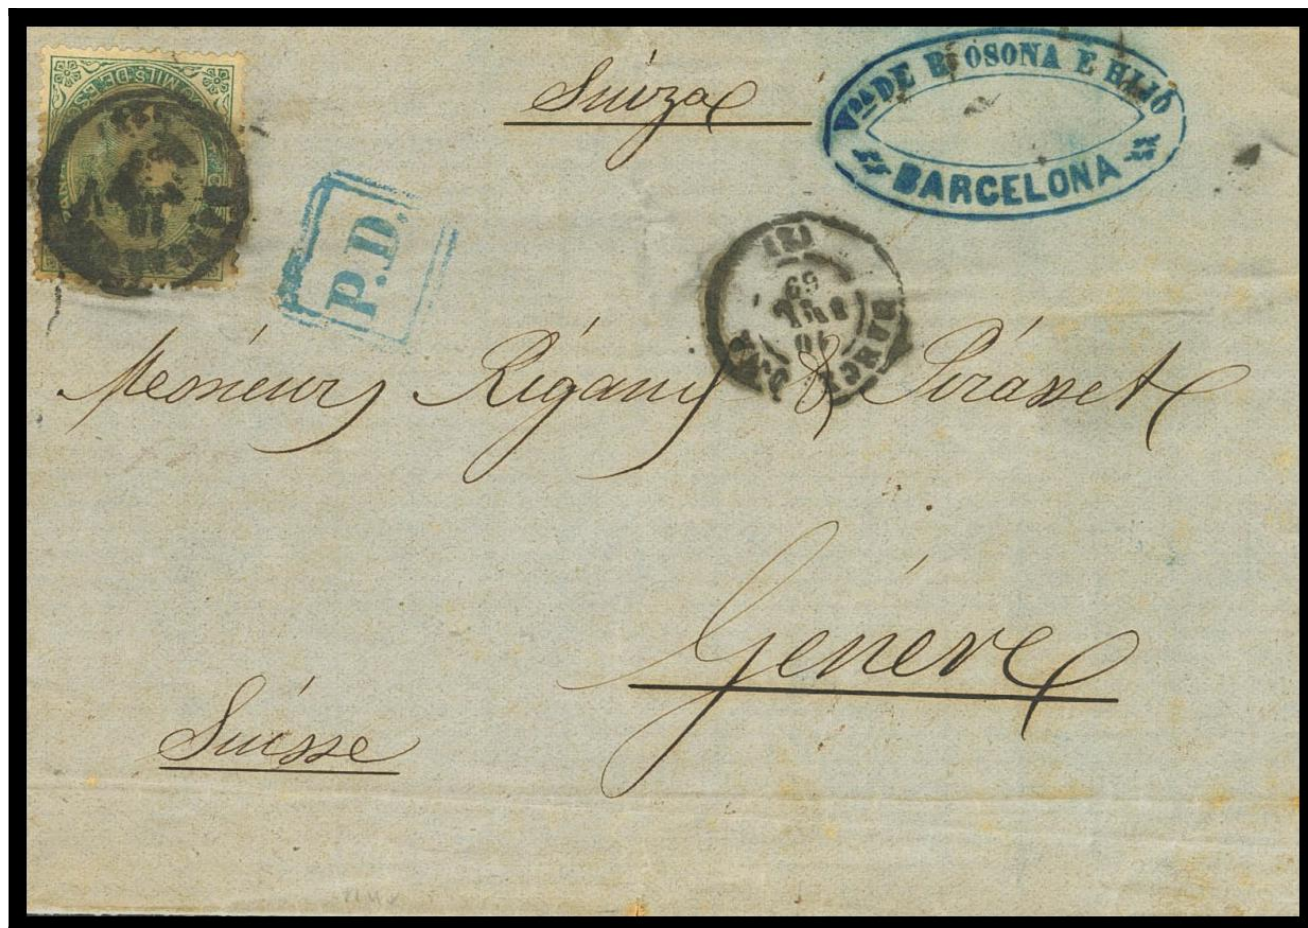 MILS. DE ES
Suiza
Vda DE B. OSONA E HIJO
BARCELONA
P.D.
10
69
Messieurs Rigaud & Pirasset
Genève
Suisse